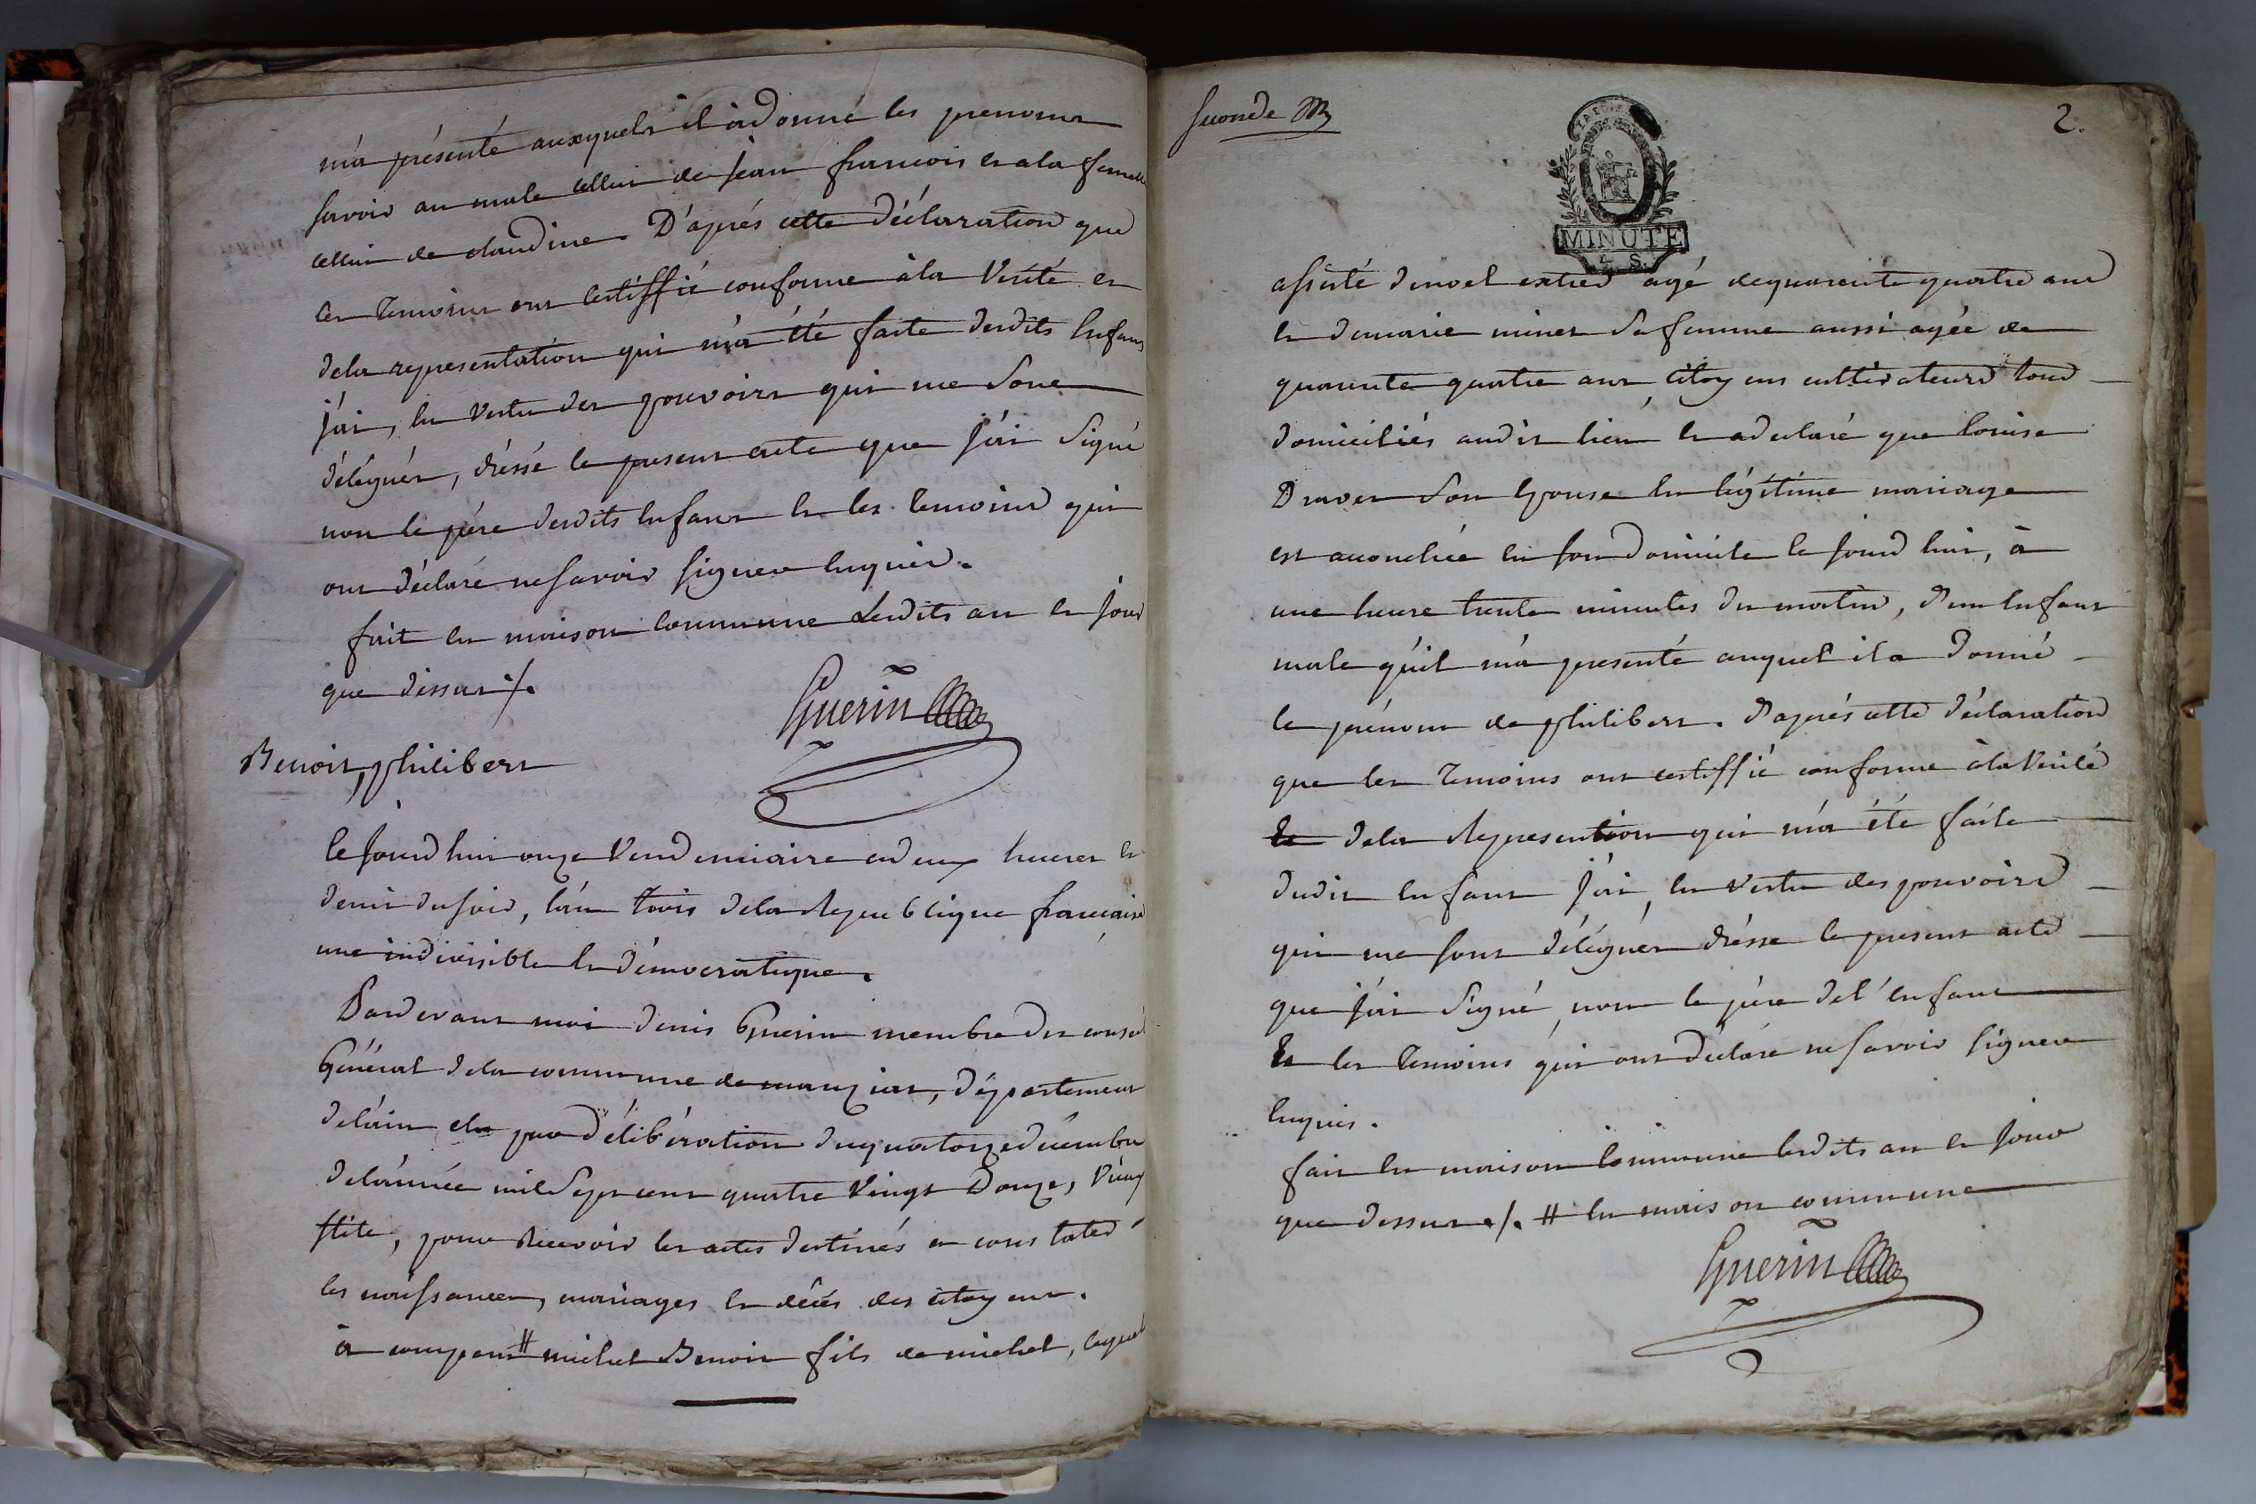 m'a présenté auxquels il a donné les prenoms
savoir au male cellui de jean francois et a la femelle
cellui de claudine. D'aprés cette déclaration que
les temoins ont certiffié conforme à la vérité et
de la representation qui m'a été faite desdits enfans
j'ai, en vertu des pouvoirs qui me sont
délégués, dréssé le present acte que j'ai signé
non le pére desdits enfans et les temoins qui
ont déclaré ne savoir signer enquis.
fait en maison commune lesdits an et jour
que dessus ./.
Guerin
Benoit, philibert
ce jourd'hui onze Vendemiaire a deux heures et
demi du soir, l'an trois de la Republique francaise
une indivisible et démocratique.
Pardevant moi denis Guerin membre du conseil
Général de la commune de manziat, département
de l'ain elu par délibération du quatorze décembre
de l'année mil Sept cent quatre Vingt Douze, vieux
stile, pour recevoir les actes destinés a constater
les naissances, mariages et décés des citoyens.
à comparu # michel Benoit fils de michel, lequel
seconde
2.
MINUTE
assisté de noel extier agé de quarente quatre ans
et de marie minet sa femme aussi agée de
quarente quatre ans citoyens cultivateurs tous
domiciliés audit lieu et a declaré que louise
Druver son epouse en légitime mariage
est accouchée en son domicile ce jourd hui, à
une heure trente minutes du matin, d'un enfant
male qu'il m'a presenté auquel il a donné
le prénom de philibert. D'aprés cette déclaration
que les temoins ont certiffié conforme à la vérité
Et de la Represention qui m'a été faite
dudit enfant j'ai, en vertu des pouvoirs
qui me sont délégués dréssé le present acte
que j'ai signé, non le pére de l'enfant
Et les temoins qui ont déclaré ne savoir signer
enquis.
fait en maison commune lesdits an et jour
que dessus ./. # en maison commune
Guerin